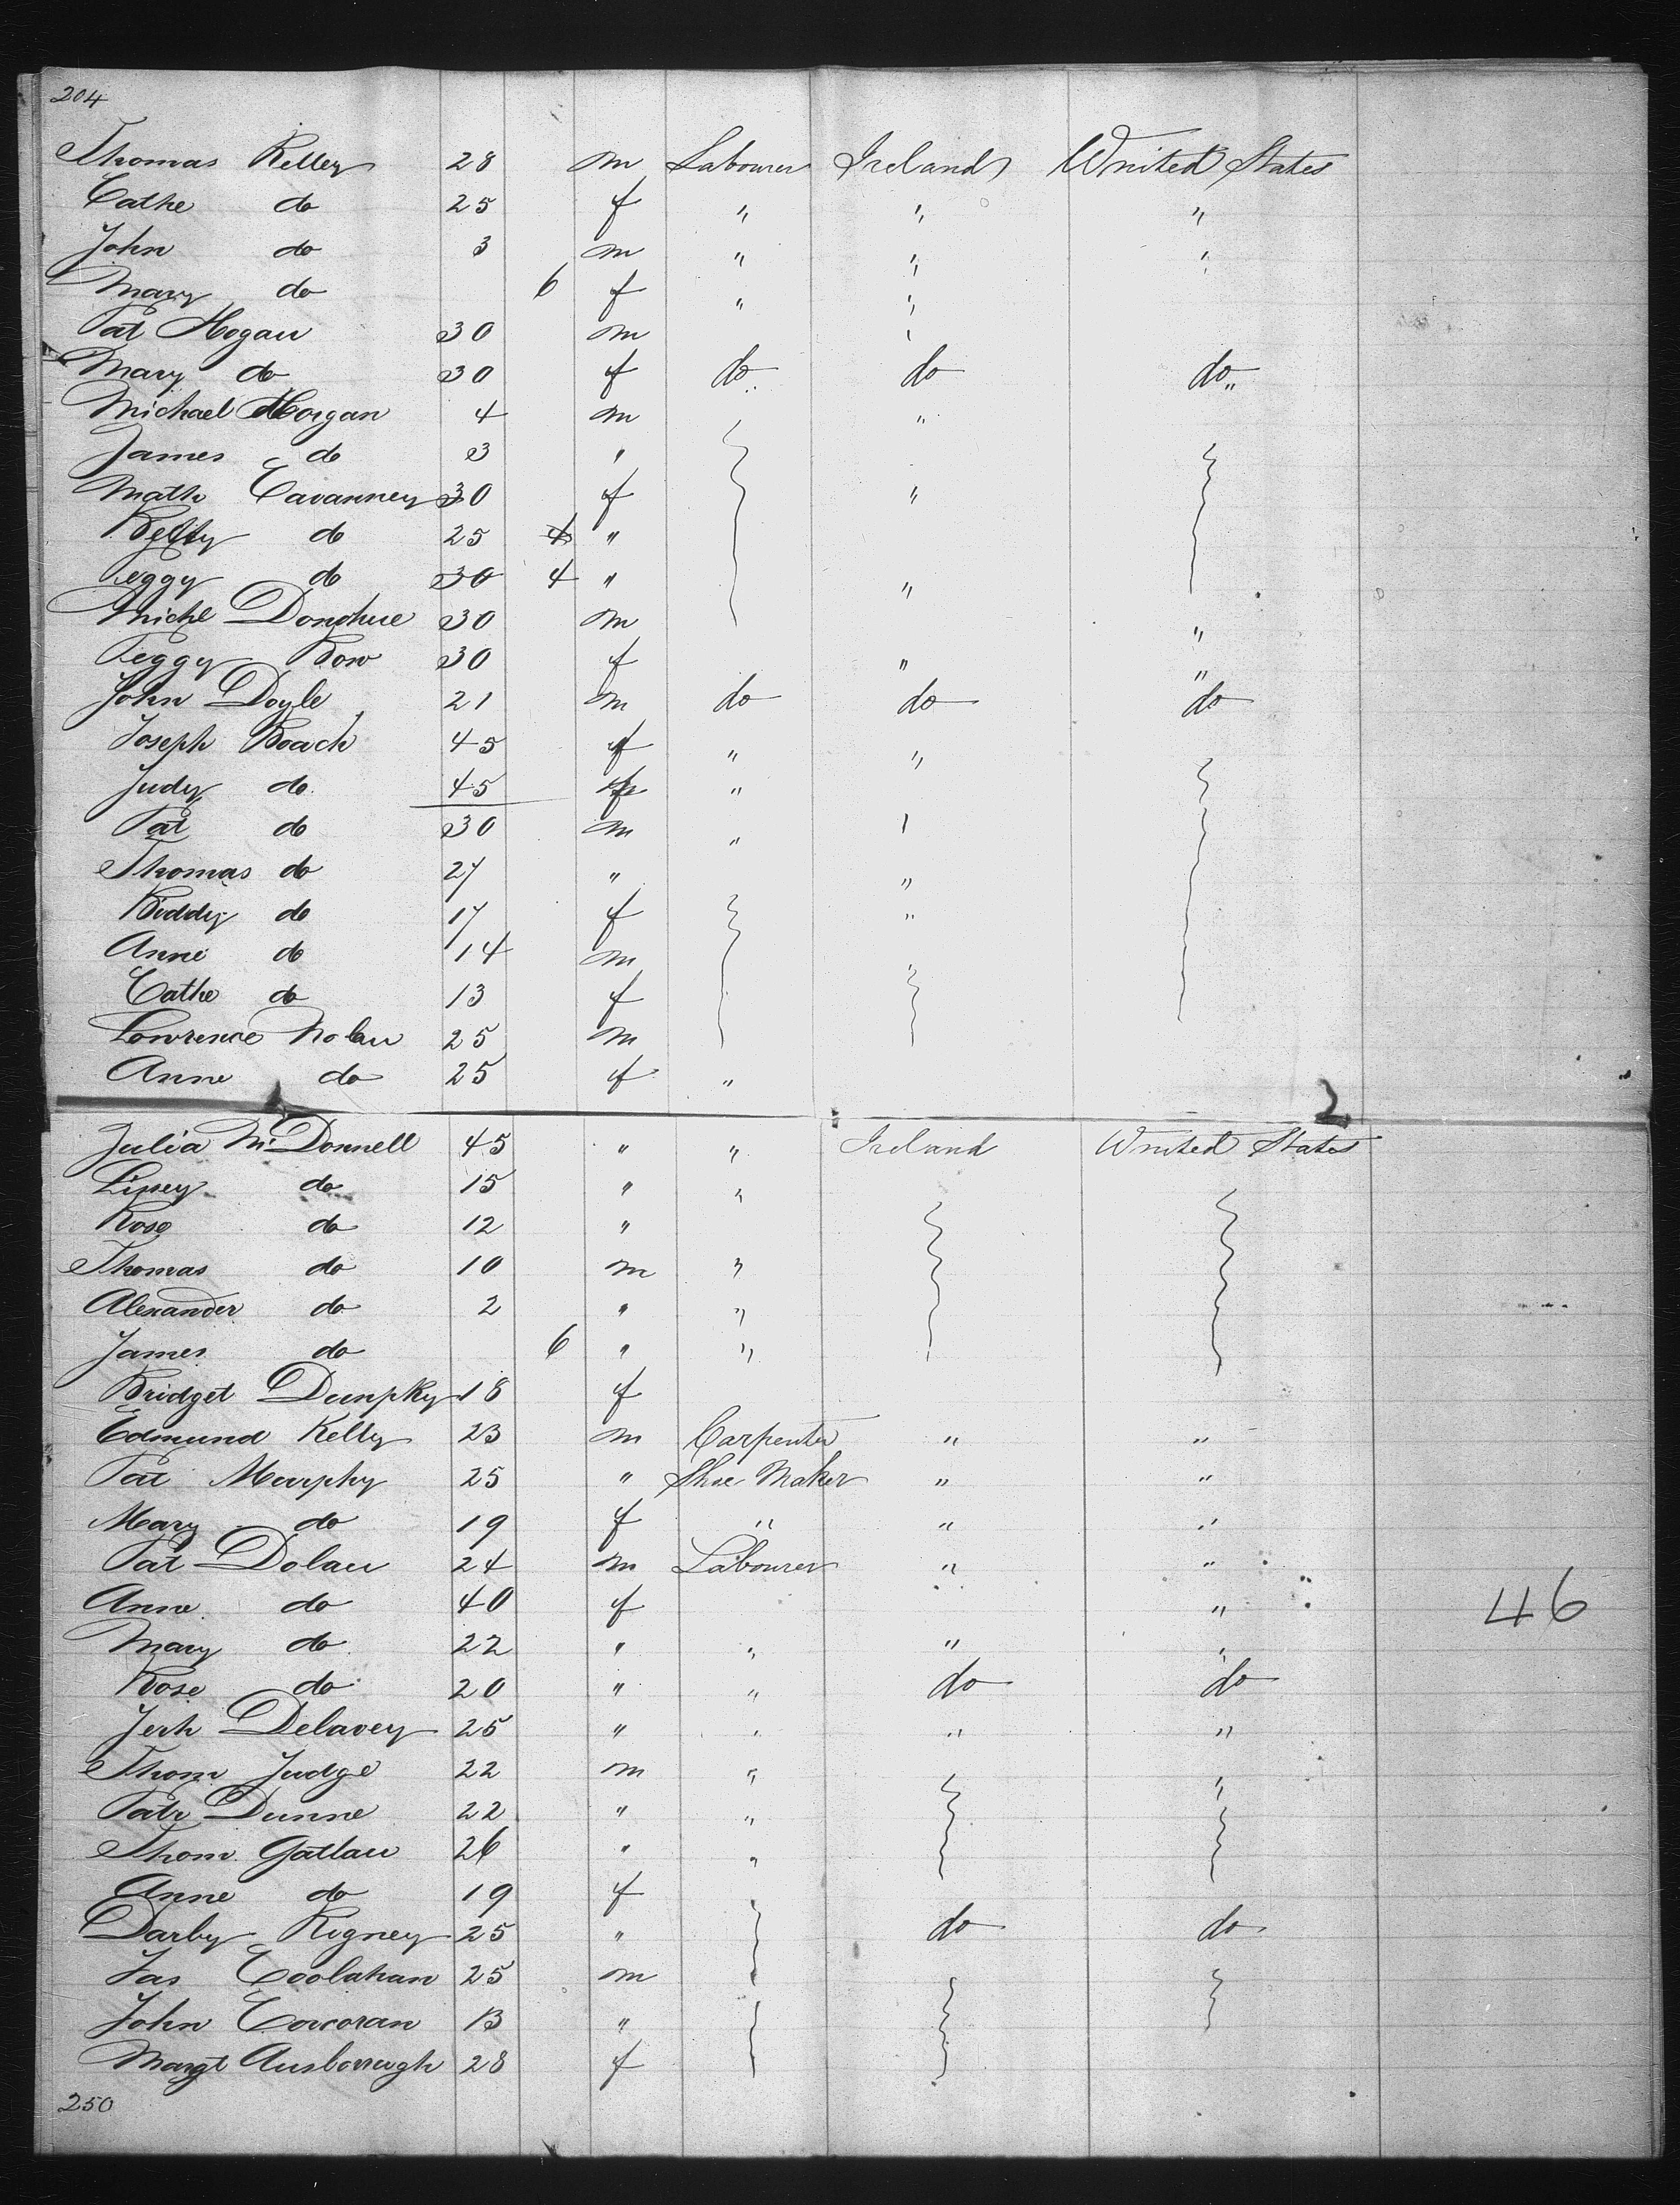 204
Thomas Kelley 28 m Labourer Ireland United States
Cathe do 25 f " " "
John do 3 m " " "
Mary do 6 f " "
Pat Hogan 30 m "
Mary do 30 f do do do "
Michael Horgan 4 m "
James do 3 "
Math Cavanney 30 f "
do 25 "
Peggy do 30 4 " "
Michl Donohue 30 m "
Peggy Row 30 f " "
John Doyle 21 m do do do
Joseph Roach 45 f " "
Judy do 45 "
Pat do 30 m " "
Thomas do 27 " "
Biddy do 17 f "
Anne do 14 m "
Cathe do 13 f
Lowrence Nolan 25 m
Anne do 25 f "
2
Julia McDonnell 45 " " Ireland United States
Lipey do 15 " "
Rose do 12 "
Thomas do 10 m "
Alexander do 2 " "
James do 6 " "
Bridget Dunphy 18 f
Edmund Kelly 23 m Carpenter " "
Pat Murphy 25 " Shoe Maker " "
Mary do 19 f " " "
Pat Dolan 24 m Labourer " "
Anne do 40 f "
Mary do 22 " " " "
Rose do 20 " " do do
Jerh Delavey 25 " " " "
Thom Judge 22 m " "
Patr Dunne 22 " "
Thom Gatlan 26 " "
Anne do 19 f
Darby Rigney 25 " do do
Jas Coolahan 25 m
John Corcoran 13 "
Margt Ausborrough 28 f
46
250